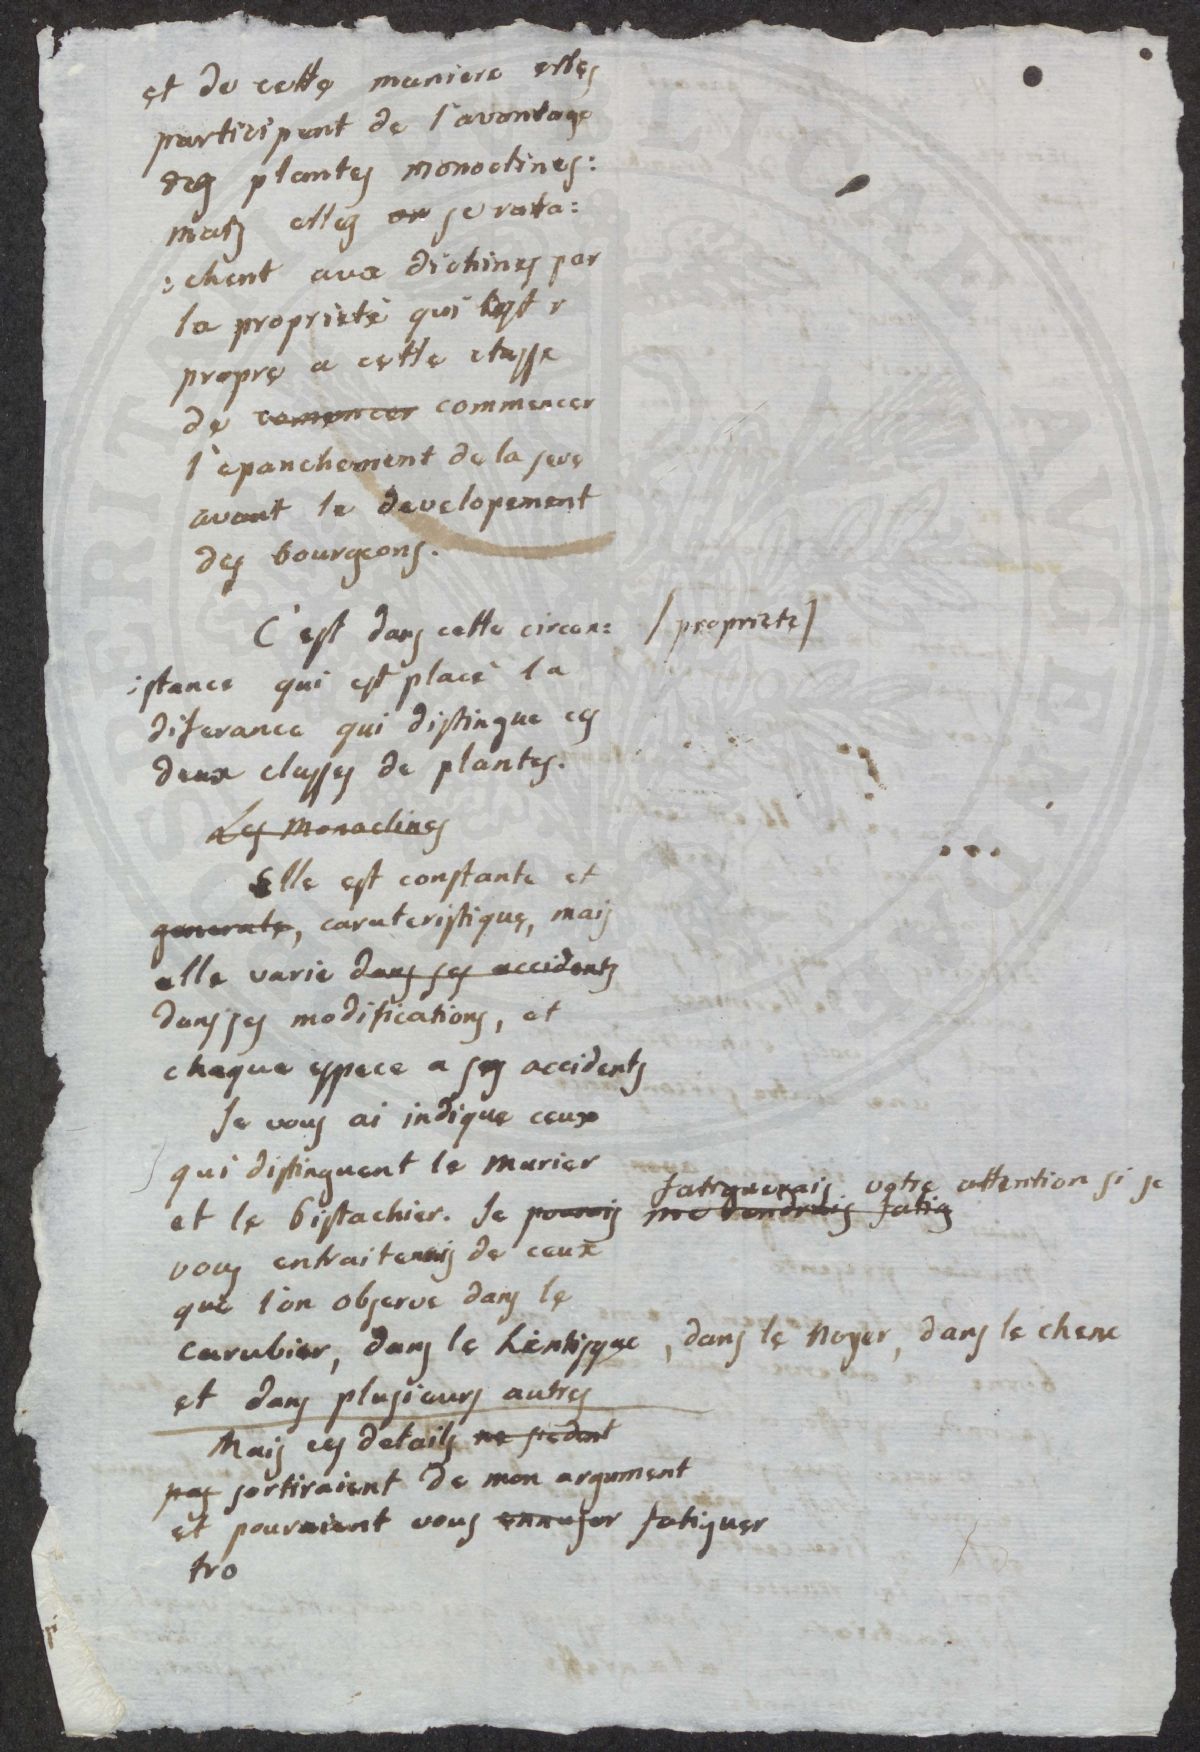 et de cette maniere elles
participent de l'avantage
des plantes monoclines:
mais elles se rata:
:chent aux dichines par
la proprieté qui est
propre a cette classe
de comencer commencer
l'epanchement de la seve
avant le developement
des bourgeons.
C'est dans cette circon: /proprieté/
:stance qui est placé la
diferance qui distingue ces
deux classes de plantes.
Les Monoclines
Elle est constante et
generale, caruteristique, mais
elle varie dans ses accidents
dans ses modifications, et
chaque espece a ses accidents
Je vous ai indique ceux
qui distinguent le murier
fatiguerais votre attention si je
et le bistachier. Je pourois me rendrais fatig
vous entraitenais de ceux
que l'on observe dans le
carubier, dans le Lentisque, dans le Noyer, dans le chene
et dans plusieurs autres
Mais ces details ne
pas sortiraient de mon argument
et pouraient vous ennujer fatiguer
tro